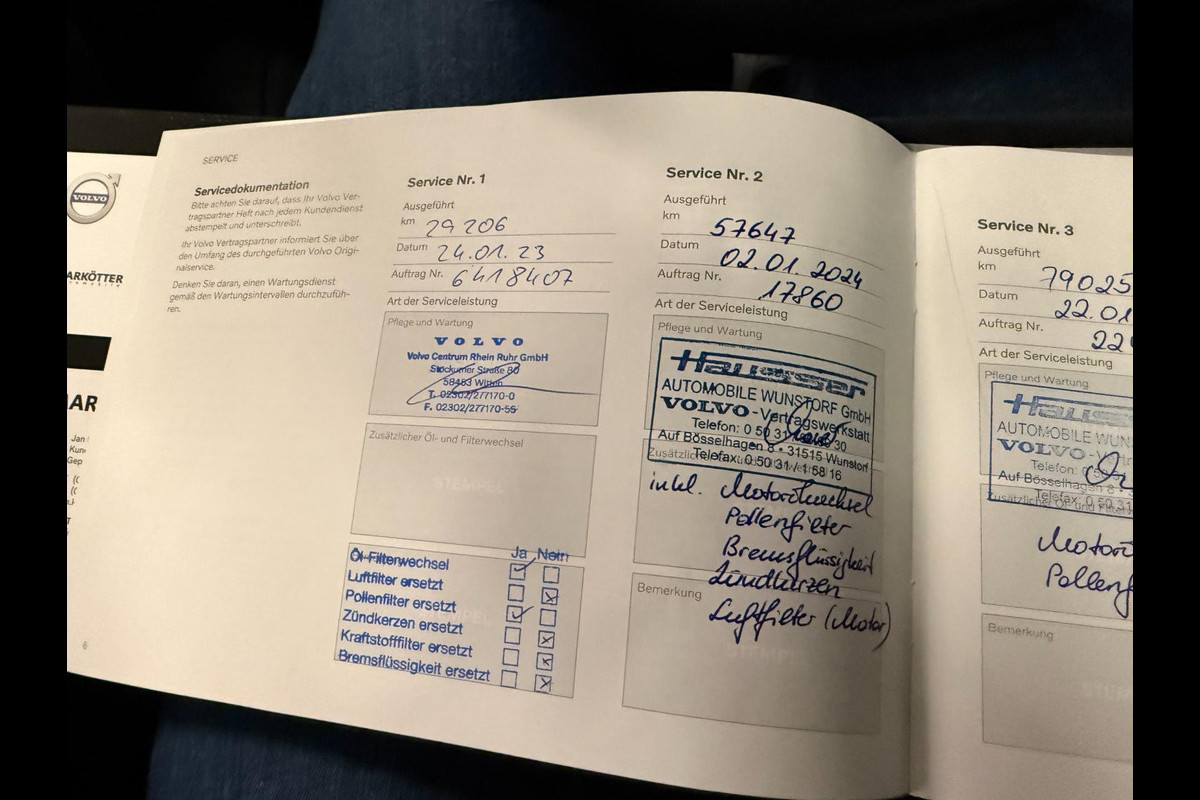 VOLVO
ARKÖTTER
AR
Jan
Kun
Gep
SERVICE
Servicedokumentation
Bitte achten Sie darauf, dass Ihr Volvo Ver-
tragspartner Heft nach jedem Kundendienst
abstempelt und unterschreibt.
Ihr Volvo Vertragspartner informiert Sie über
den Umfang des durchgeführten Volvo Origi-
nalservice.
Denken Sie daran, einen Wartungsdienst
gemäß den Wartungsintervallen durchzufüh-
ren.
6
Service Nr. 1
Ausgeführt
km 29 206
Datum 24.01.23
Auftrag Nr. 6418407
Art der Serviceleistung
Pflege und Wartung
VOLVO
Volvo Centrum Rhein Ruhr GmbH
Stockumer Straße 80
58453 Witten
T. 02302/277170-0
F. 02302/277170-55
Zusätzlicher Öl- und Filterwechsel
STEMPEL
Ja Nein
Öl-Filterwechsel
Luftfilter ersetzt
Pollenfilter ersetzt
Zündkerzen ersetzt
Kraftstofffilter ersetzt
Bremsflüssigkeit ersetzt
Service Nr. 2
Ausgeführt
km 57647
Datum 02.01.2024
Auftrag Nr. 17860
Art der Serviceleistung
Pflege und Wartung
Hausser
AUTOMOBILE WUNSTORF GmbH
VOLVO-Vertragswerkstatt
Telefon: 0 50 31 30
Auf Bösselhagen 8 • 31515 Wunstorf
Telefax: 0 50 31 / 1 58 16
inkl. Motorölwechsel
Pollenfilter
Bremsflüssigkeit
Zündkerzen
Bemerkung
Luftfilter (Motor)
STEMPEL
Service Nr. 3
Ausgeführt
km 79025
Datum 22.01
Auftrag Nr. 22
Art der Serviceleistung
Pflege und Wartung
Hausser
AUTOMOBILE WUN
VOLVO-Vertr
Telefon: 0 50
Auf Bösselhagen 8 •
Telefax: 0 50 31
Zusätzlicher Öl- und Filter
Motorö
Pollenf
Bemerkung
STEM